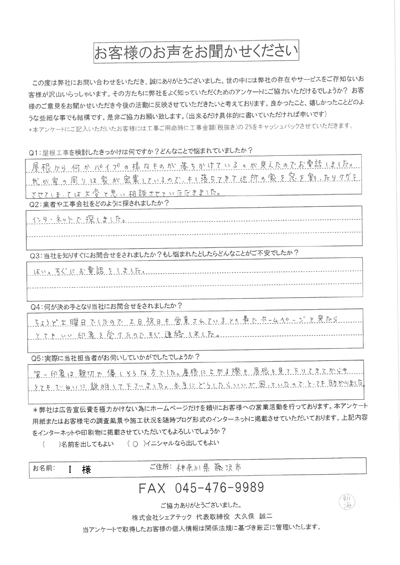 お客様のお声をお聞かせください
この度は弊社にお問い合わせをいただき、誠にありがとうございました。世の中には弊社の存在やサービスをご存知ないお
客様が沢山いらっしゃいます。その方たちに弊社をよく知っていただくためのアンケートにご協力いただけるでしょうか？お客
様のご意見をお聞かせいただき今後の活動に反映させていただきたいと考えております。良かったこと、嬉しかったことどのよ
うな些細な事でも結構です。是非ご協力お願い致します。（出来るだけ具体的に書いていただければ幸いです）
*本アンケートにご記入いただいたお客様には工事ご用命時に工事金額（税抜き）の2%をキャッシュバックさせていただきます。
Q1:屋根工事を検討したきっかけは何ですか？どんなことで悩まれていましたか？
屋根から何かパイプの様なものが落ちかけているのが見えたのでお電話しました。
我が家の周りは家が密集しているので、もし落ちてきて近所の家を窓を割ったりケガを
させてしまっては大変と思い相談させていただきました。
Q2:業者や工事会社をどのように探されましたか？
インターネットで探しました。
Q3:当社を知りすぐにお問合せをされましたか？もし悩まれたとしたらどんなことがご不安でしたか？
はい。すぐにお電話をしました。
Q4:何が決め手となり当社にお問合せをされましたか？
ちょうど土曜日でしたので、土日祝日も営業されているとの事でホームページを見たら
とてもいい印象を受けたのですぐ連絡しました。
Q5:実際に当社担当者がお伺いしていかがでしたでしょうか？
第一印象は親切で優しそうな方でした。屋根に上がる際も
とてもていねいに説明して下さいました。本当にどうしたらいいか困っていたのでとても助かりました。
*弊社は広告宣伝費を極力かけない為にホームページだけを頼りにお客様への営業活動を行っております。本アンケート
用紙またはお客様宅の調査風景や施工状況を随時ブログ形式のインターネットに掲載させていただいております。上記内容
をインターネットや印刷物に掲載させていただいてもよろしいでしょうか？
（　）名前を出してもよい　（○）イニシャルなら出してもよい
お名前: I 様 ご住所: 神奈川県藤沢市
FAX 045-476-9989
ご協力ありがとうございました。
株式会社シェアテック 代表取締役 大久保 誠二
当アンケートで取得したお客様の個人情報は関係法規に基づき厳正に管理いたします。